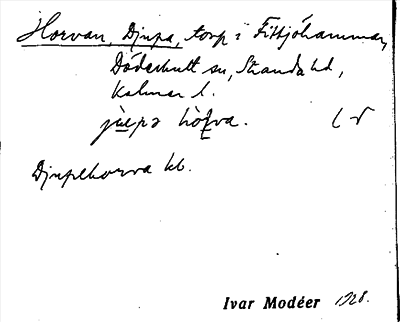 Horvan, Djupa, torp i Fittjóhammar,
Döderhult sn, Stranda hd,
Kalmar l.
jùpə hòrva.
Djupehorva kb.
Ivar Modéer 1928.